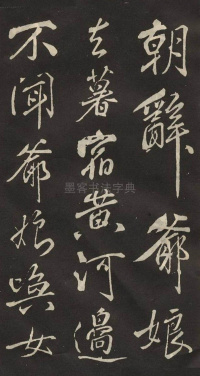 朝辭爺娘
去暮宿黃河邊
不聞爺娘喚女
墨客书法字典